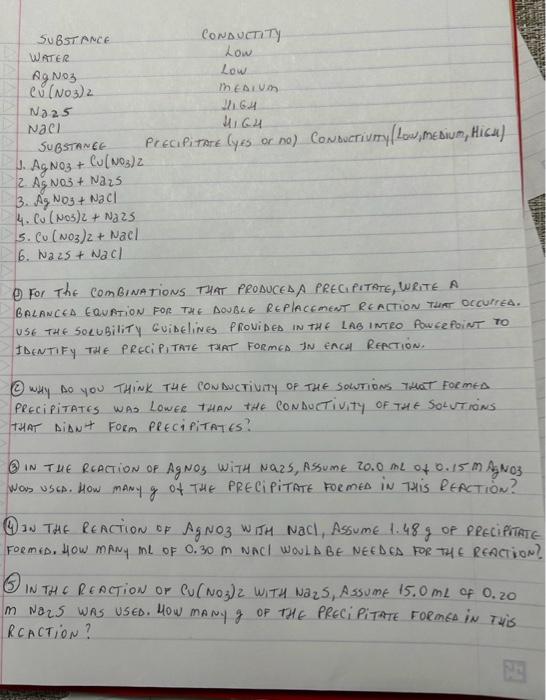 SUBSTANCE CONDUCTITY
WATER Low
AgNO3 Low
CU(NO3)2 MEDIUM
Na2S HIGH
NaCl HIGH
SUBSTANCE PRECIPITATE (yes or no) CONDUCTIVITY (Low, MEDIUM, HIGH)
1. AgNO3 + CU(NO3)2
2. AgNO3 + Na2S
3. AgNO3 + NaCl
4. CU(NO3)2 + Na2S
5. CU(NO3)2 + NaCl
6. Na2S + NaCl
① FOR THE COMBINATIONS THAT PRODUCED A PRECIPITATE, WRITE A
BALANCED EQUATION FOR THE DOUBLE REPLACEMENT REACTION THAT OCCURRED.
USE THE SOLUBILITY GUIDELINES PROVIDED IN THE LAB INTRO POWERPOINT TO
IDENTIFY THE PRECIPITATE THAT FORMED IN EACH REACTION.
② WHY DO YOU THINK THE CONDUCTIVITY OF THE SOLUTIONS THAT FORMED
PRECIPITATES WAS LOWER THAN THE CONDUCTIVITY OF THE SOLUTIONS
THAT DIDN't FORM PRECIPITATES?
③ IN THE REACTION OF AgNO3 WITH Na2S, ASSUME 20.0 mL of 0.15 M AgNO3
WAS USED. HOW MANY g OF THE PRECIPITATE FORMED IN THIS REACTION?
④ IN THE REACTION OF AgNO3 WITH NaCl, ASSUME 1.48 g OF PRECIPITATE
FORMED. HOW MANY mL OF 0.30 M NACl WOULD BE NEEDED FOR THE REACTION?
⑤ IN THE REACTION OF CU(NO3)2 WITH Na2S, ASSUME 15.0 mL OF 0.20
M Na2S WAS USED. HOW MANY g OF THE PRECIPITATE FORMED IN THIS
REACTION?